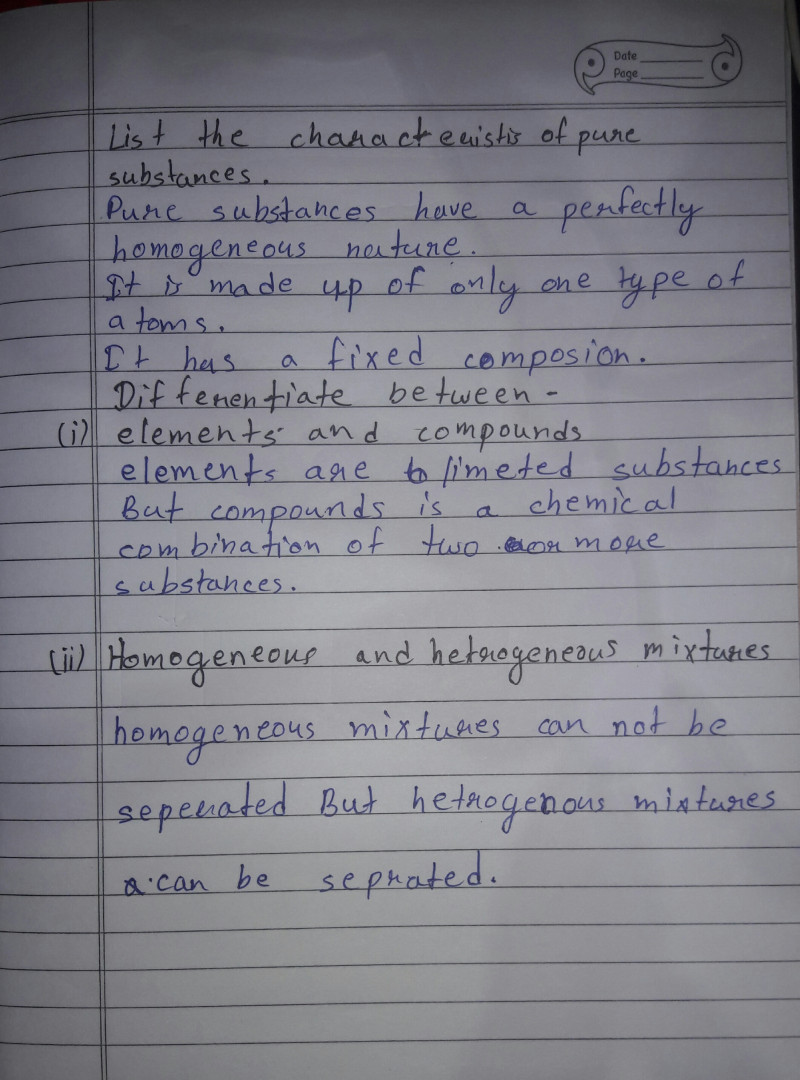 Date
Page
List the characteristis of pure
substances.
Pure substances have a perfectly
homogeneous nature.
It is made up of only one type of
atoms.
It has a fixed composion.
Differentiate between -
(i) elements and compounds
elements are limeted substances
But compounds is a chemical
combination of two or more
substances.
(ii) Homogeneous and hetrogeneous mixtures
homogeneous mixtures can not be
seperated But hetrogenous mixtures
can be seprated.